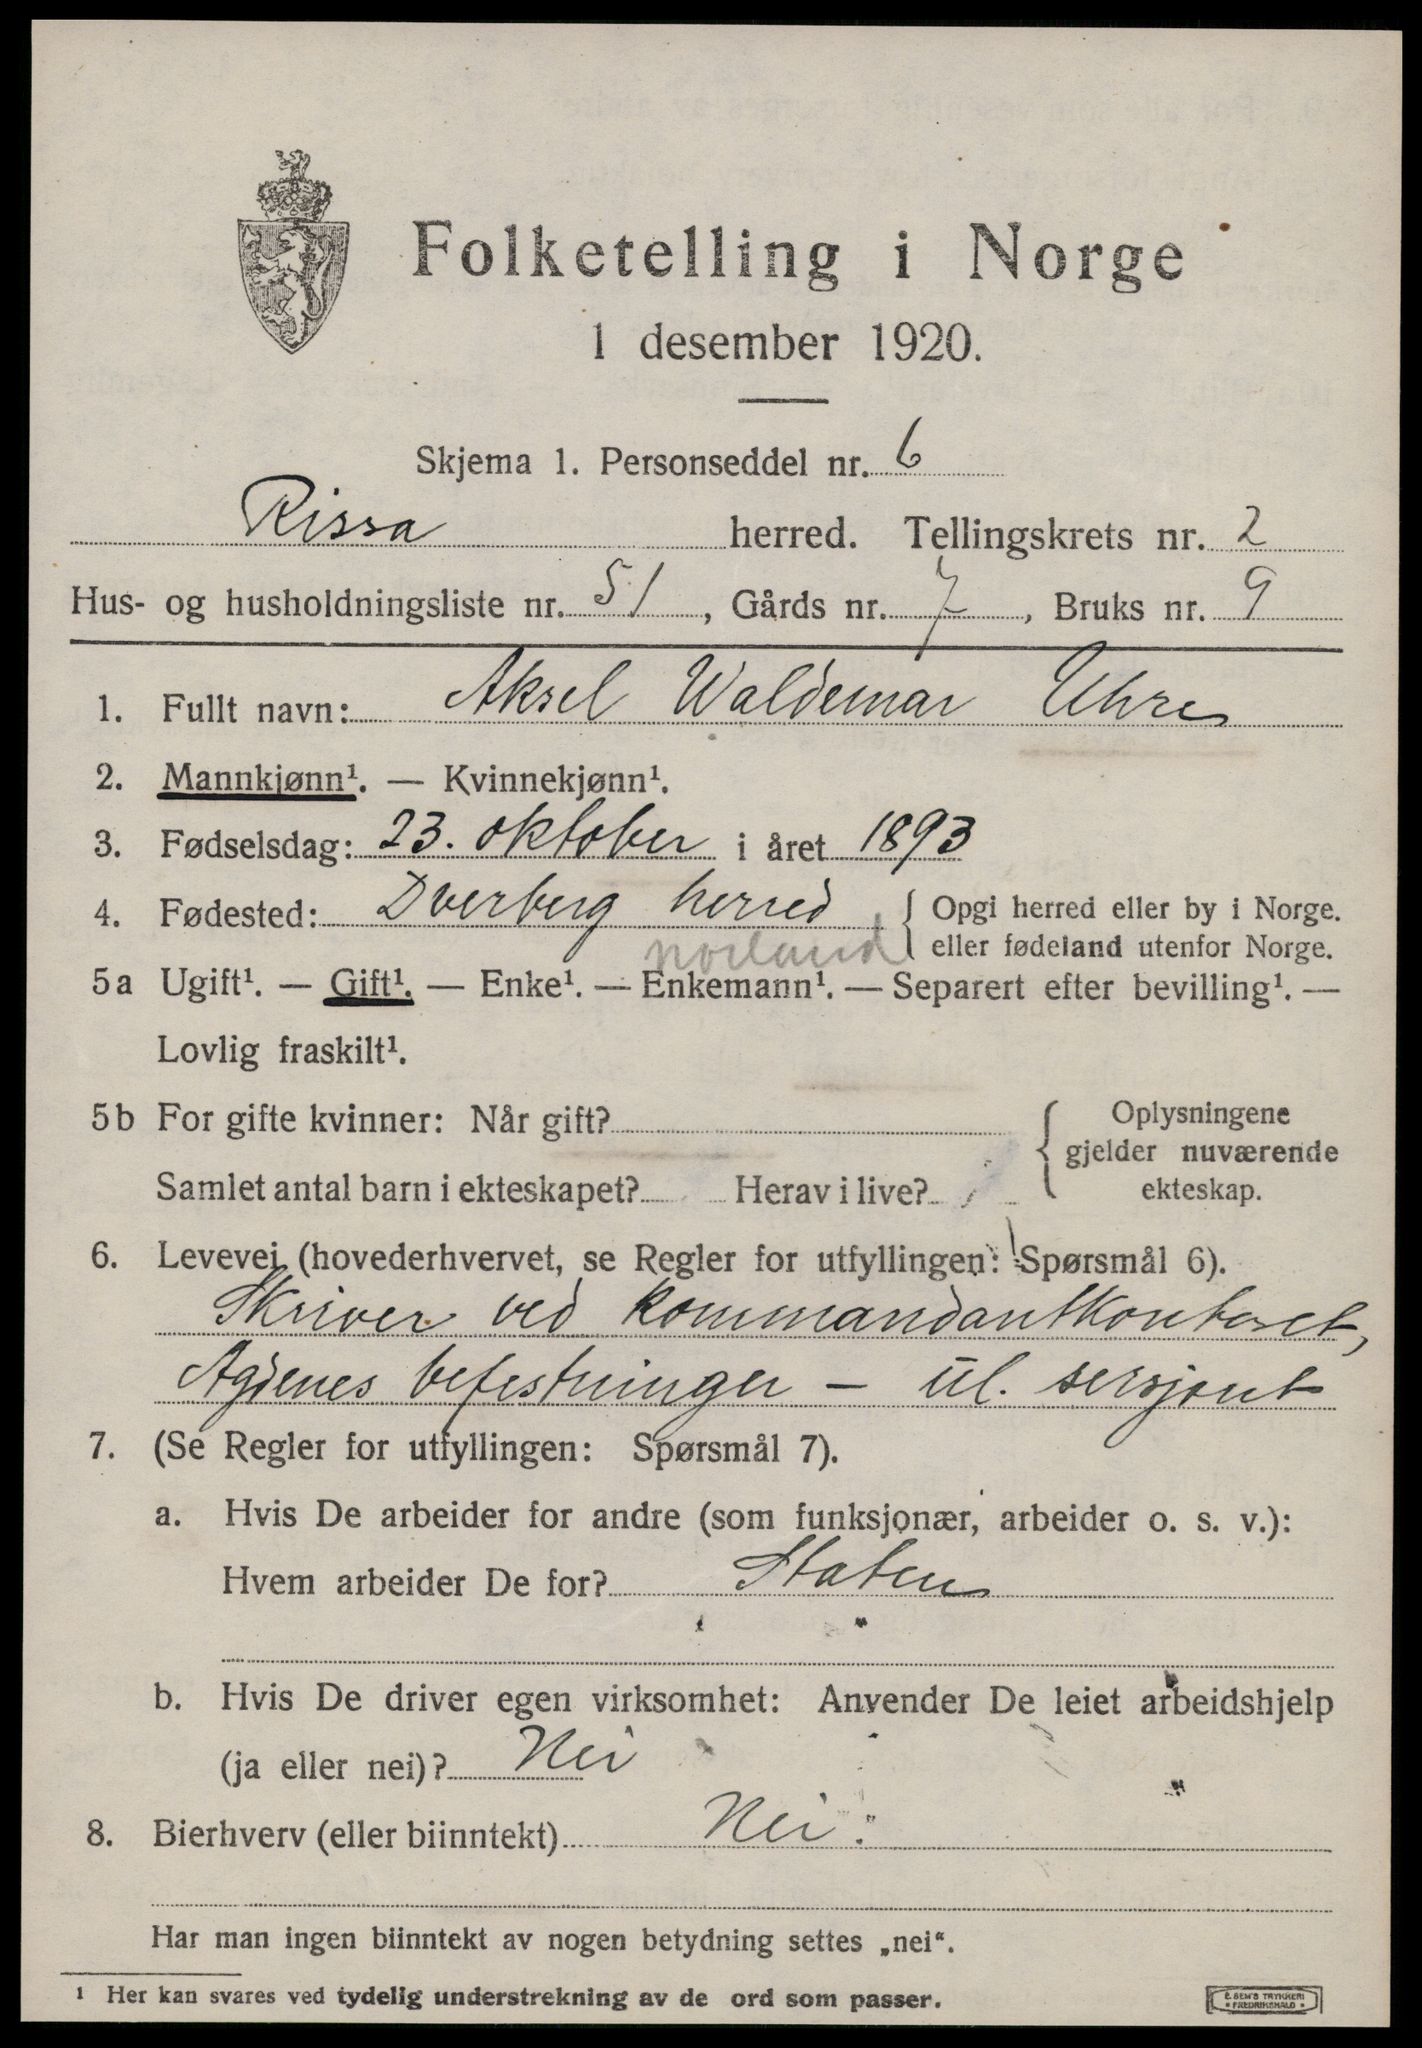 Folketelling i Norge
1 desember 1920.
Skjema 1. Personseddel nr. 6
Rissa herred. Tellingskrets nr. 2
Hus- og husholdningsliste nr. 51, Gårds nr. 7, Bruks nr. 9
1. Fullt navn: Aksel Waldemar Uhre
2. Mannkjønn¹. — Kvinnekjønn¹.
3. Fødselsdag: 23. oktober i året 1893
4. Fødested: Dverberg herred { Opgi herred eller by i Norge.
norland eller fødeland utenfor Norge.
5a Ugift¹. — Gift¹. — Enke¹. — Enkemann¹. — Separert efter bevilling¹. —
Lovlig fraskilt¹.
5b For gifte kvinner: Når gift? { Oplysningene
gjelder nuværende
Samlet antal barn i ekteskapet? Herav i live? ekteskap.
6. Levevei (hovederhvervet, se Regler for utfyllingen: Spørsmål 6).
Skriver ved kommandantkontoret,
Agdenes befestninger – ul. sersjant
7. (Se Regler for utfyllingen: Spørsmål 7).
a. Hvis De arbeider for andre (som funksjonær, arbeider o. s. v.):
Hvem arbeider De for? Staten
b. Hvis De driver egen virksomhet: Anvender De leiet arbeidshjelp
(ja eller nei)? Nei
8. Bierhverv (eller biinntekt) Nei.
Har man ingen biinntekt av nogen betydning settes „nei“.
¹ Her kan svares ved tydelig understrekning av de ord som passer.
E. SEM'S TRYKKERI
FREDRIKSHALD